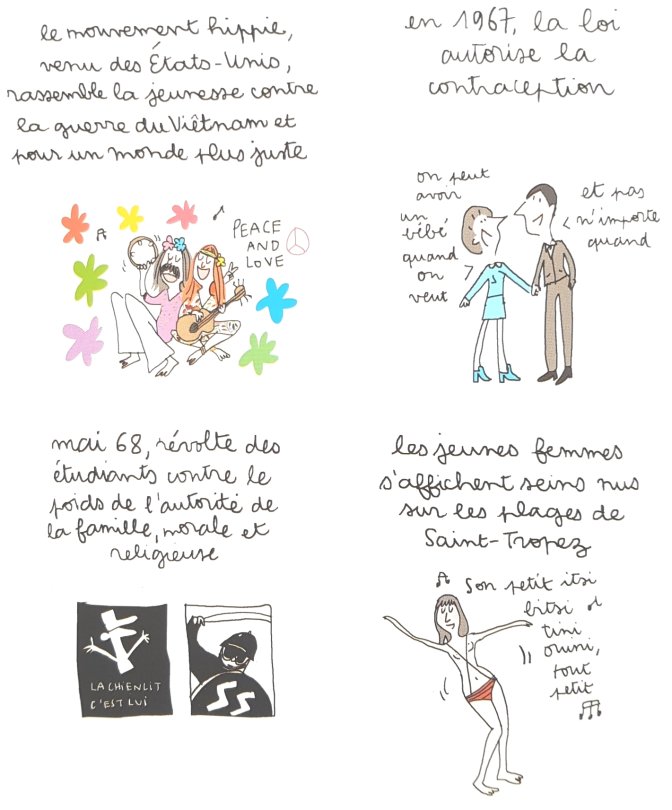 le mouvement hippie,
venu des États-Unis,
rassemble la jeunesse contre
la guerre du Viêtnam et
pour un monde plus juste
PEACE
AND
LOVE
en 1967, la loi
autorise la
contraception
on peut
avoir
un
bébé
quand
on
veut
et pas
n'importe
quand
mai 68, révolte des
étudiants contre le
poids de l'autorité de
la famille, morale et
religieuse
LA CHIENLIT
C'EST LUI
SS
les jeunes femmes
s'affichent seins nus
sur les plages de
Saint-Tropez
Son petit itsi
bitsi
tini
ouini,
tout
petit